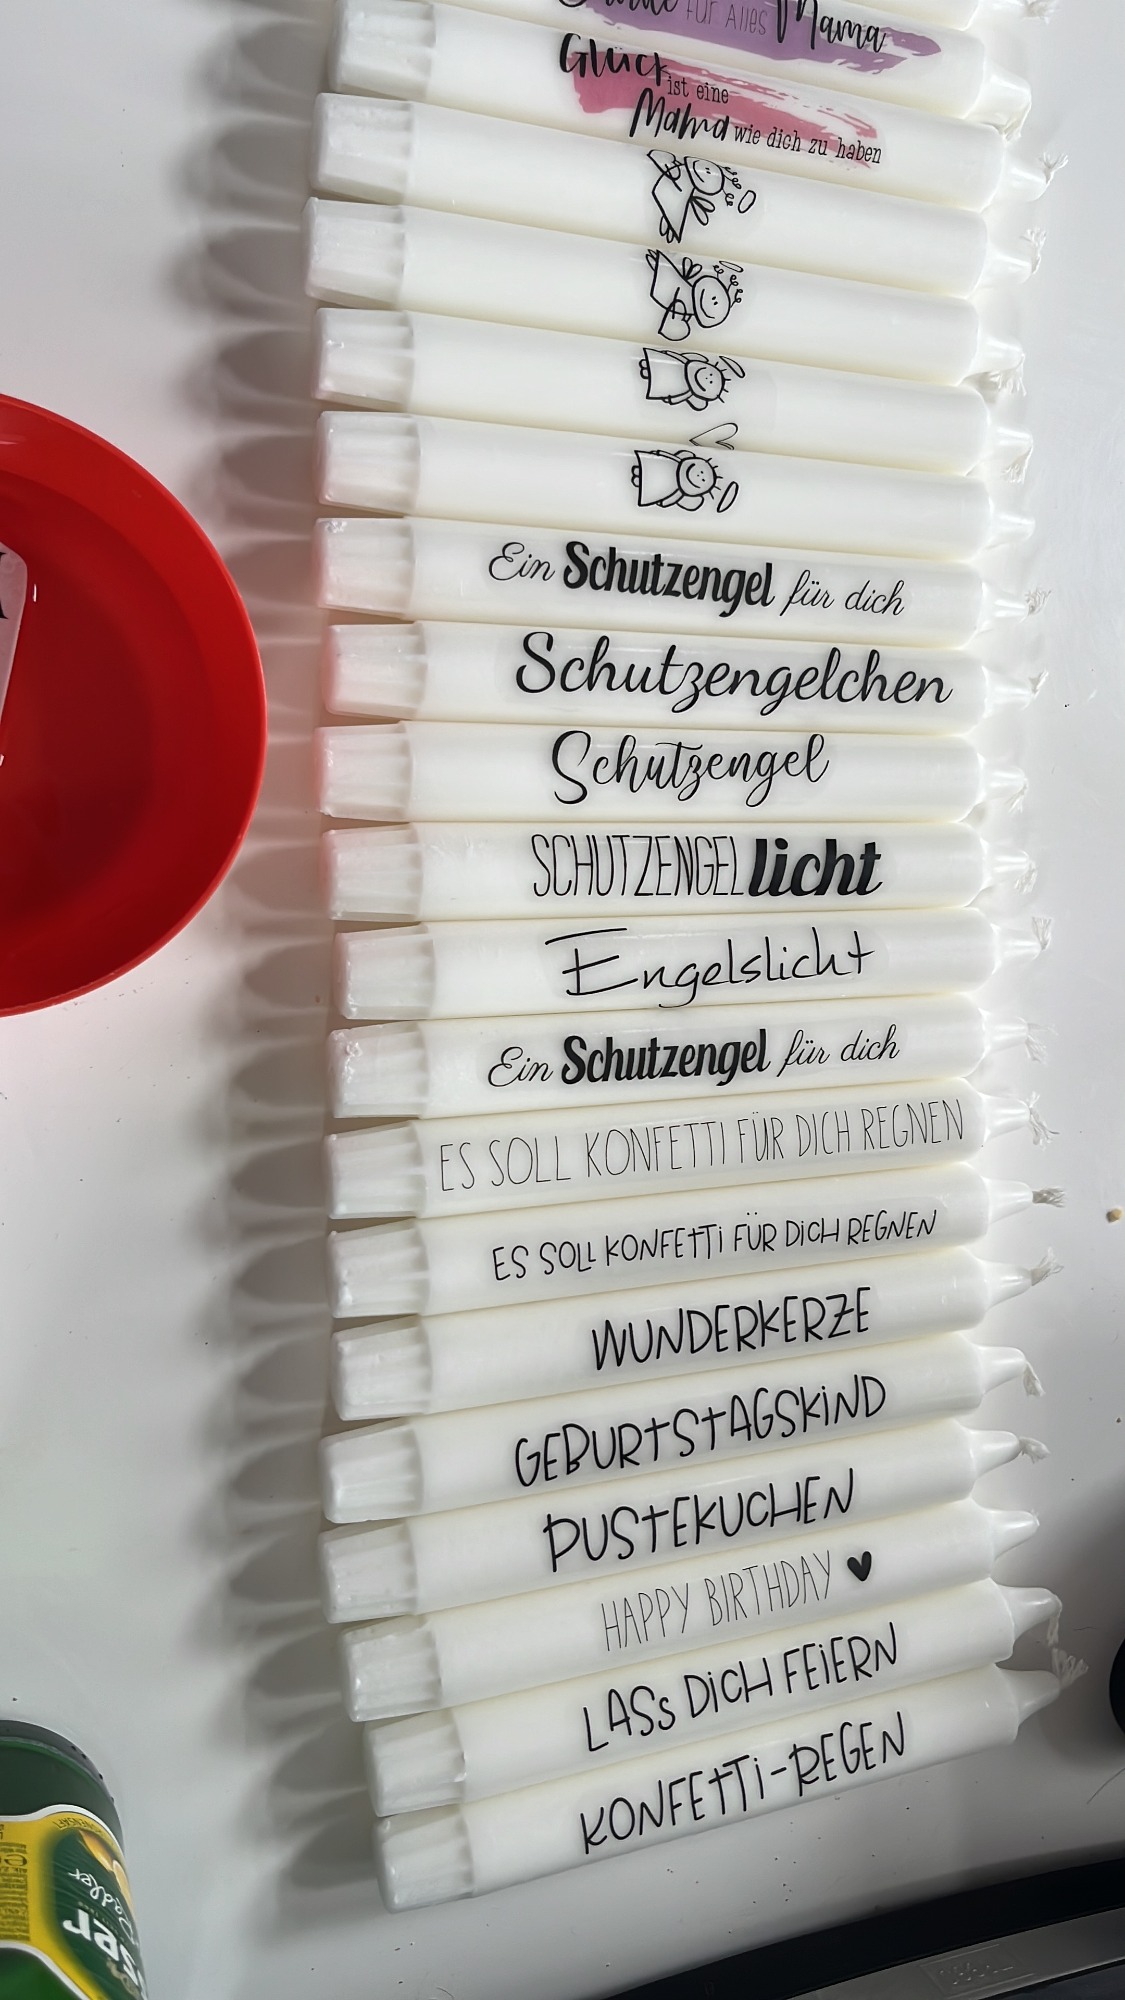 für alles Mama
Glück
ist eine
Mama wie dich zu haben
Ein Schutzengel für dich
Schutzengelchen
Schutzengel
SCHUTZENGELlicht
Engelslicht
Ein Schutzengel für dich
ES SOLL KONFETTI FÜR DICH REGNEN
ES SOLL KONFETTi FÜR DiCH REGNEN
WUNDERKERZE
GEBURtStAGSKiND
PUStEKUCHEN
HAPPY BIRTHDAY ♥
LASS DiCH FEiERN
KONFEtTi-REGEN
Radler